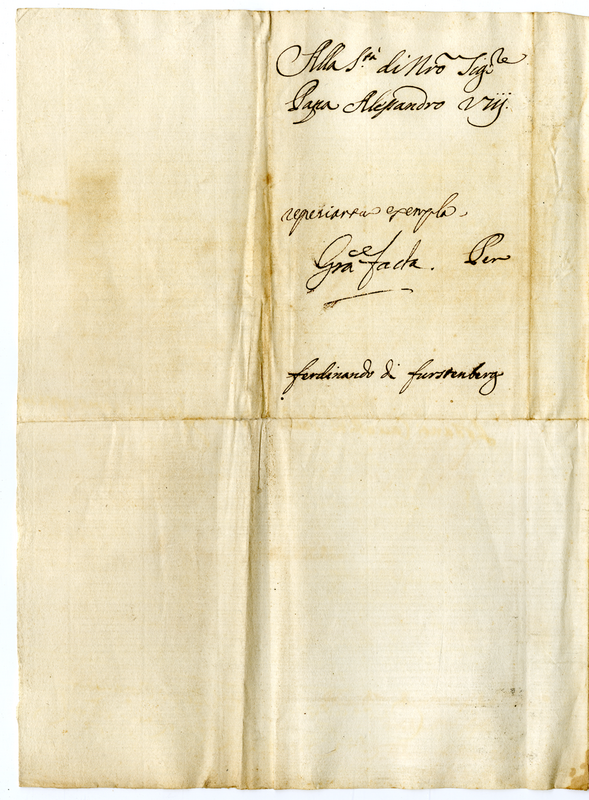 Alla S.tà di Nrõ Sig.re
Papa Alessandro VIIj.
reperiantur exempla.
Gra.ce facta. Per
ferdinando di furstenberg